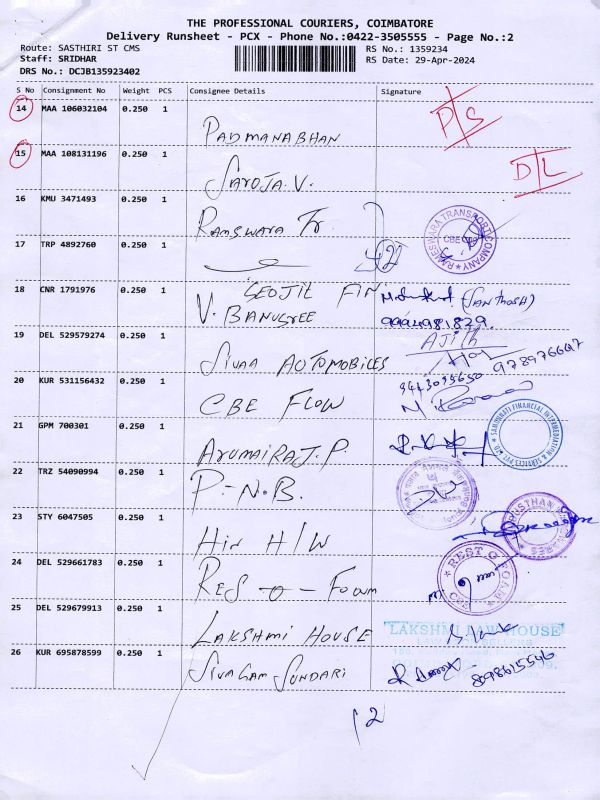 THE PROFESSIONAL COURIERS, COIMBATORE
Delivery Runsheet - PCX - Phone No.:0422-3505555 - Page No.:2
Route: SASTHIRI ST CMS RS No.: 1359234
Staff: SRIDHAR RS Date: 29-Apr-2024
DRS No.: DCJB135923402
S No Consignment No Weight PCS Consignee Details Signature
14 MAA 106032104 0.250 1
PADMANABHAN D/S
15 MAA 108131196 0.250 1
SAROJA.V. D/L
16 KMU 3471493 0.250 1
RAMSWARA Tr
RAMESWARA TRANSPORT COMPANY
CBE
17 TRP 4892760 0.250 1
18 CNR 1791976 0.250 1
GEOJIT FIN
V. BANUSREE (SANTHOSH)
9994981829.
19 DEL 529579274 0.250 1
AJITH
SIVAA AUTOMOBILES
20 KUR 531156432 0.250 1
CBE FLOW
21 GPM 700301 0.250 1
SAMUNNATI FINANCIAL INTERMEDIATION & SERVICES PVT LTD
ARUMAIRAJ.P.
22 TRZ 54090994 0.250 1
P.N.B.
23 STY 6047505 0.250 1
HIN H/W
24 DEL 529661783 0.250 1
REST O FOAM
RES - O - FOAM
25 DEL 529679913 0.250 1
LAKSHMI HOUSE
LAKSHMI LAW HOUSE
26 KUR 695878599 0.250 1
SIVAGAM SUNDARI
12